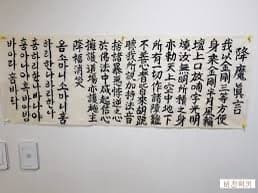 降魔眞言
我以金剛三等方便
身乘金剛半月風輪
壇上口放喃字光明
燒汝無明所積之身
亦勅天上空中地下
所有一切作諸障難
不善心者皆來胡跪
聽我所說加持法音
捨諸暴惡悖逆之心
於佛法中咸起信心
擁護道場亦護施主
降福消災
옴 소마니 소마니 훔
하리한나 하리한나 훔
하리한나 바나야 훔
아나야혹 바아밤
바아라 훔바탁